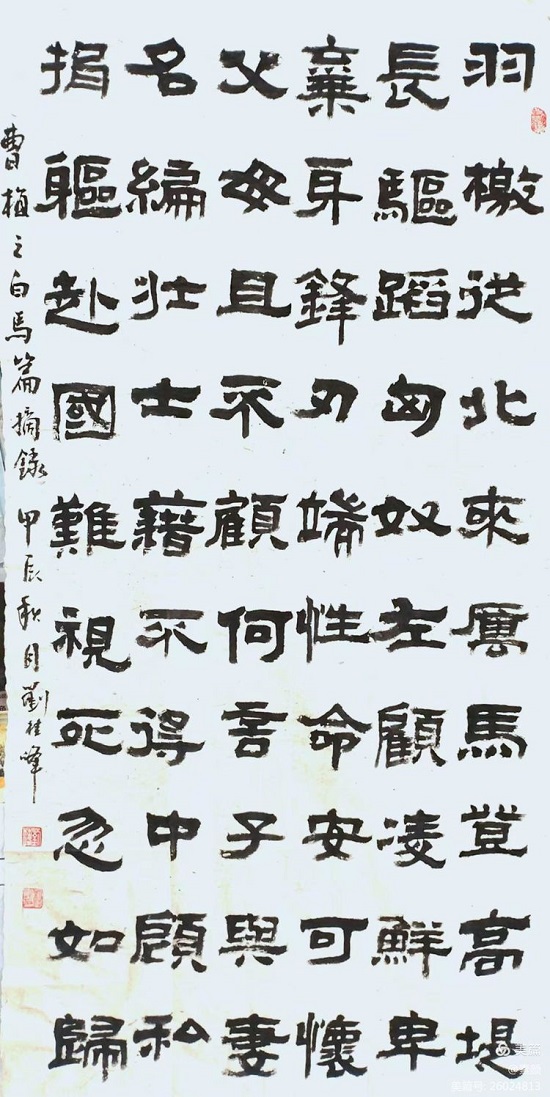 羽檄從北來厲馬登高堤
長驅蹈匈奴左顧凌鮮卑
棄身鋒刃端性命安可懷
父母且不顧何言子與妻
名編壯士藉不得中顧私
捐軀赴國難視死忽如歸
曹植之白馬篇摘錄 甲辰秋月劉桂峰
美篇
美篇号: 26024813